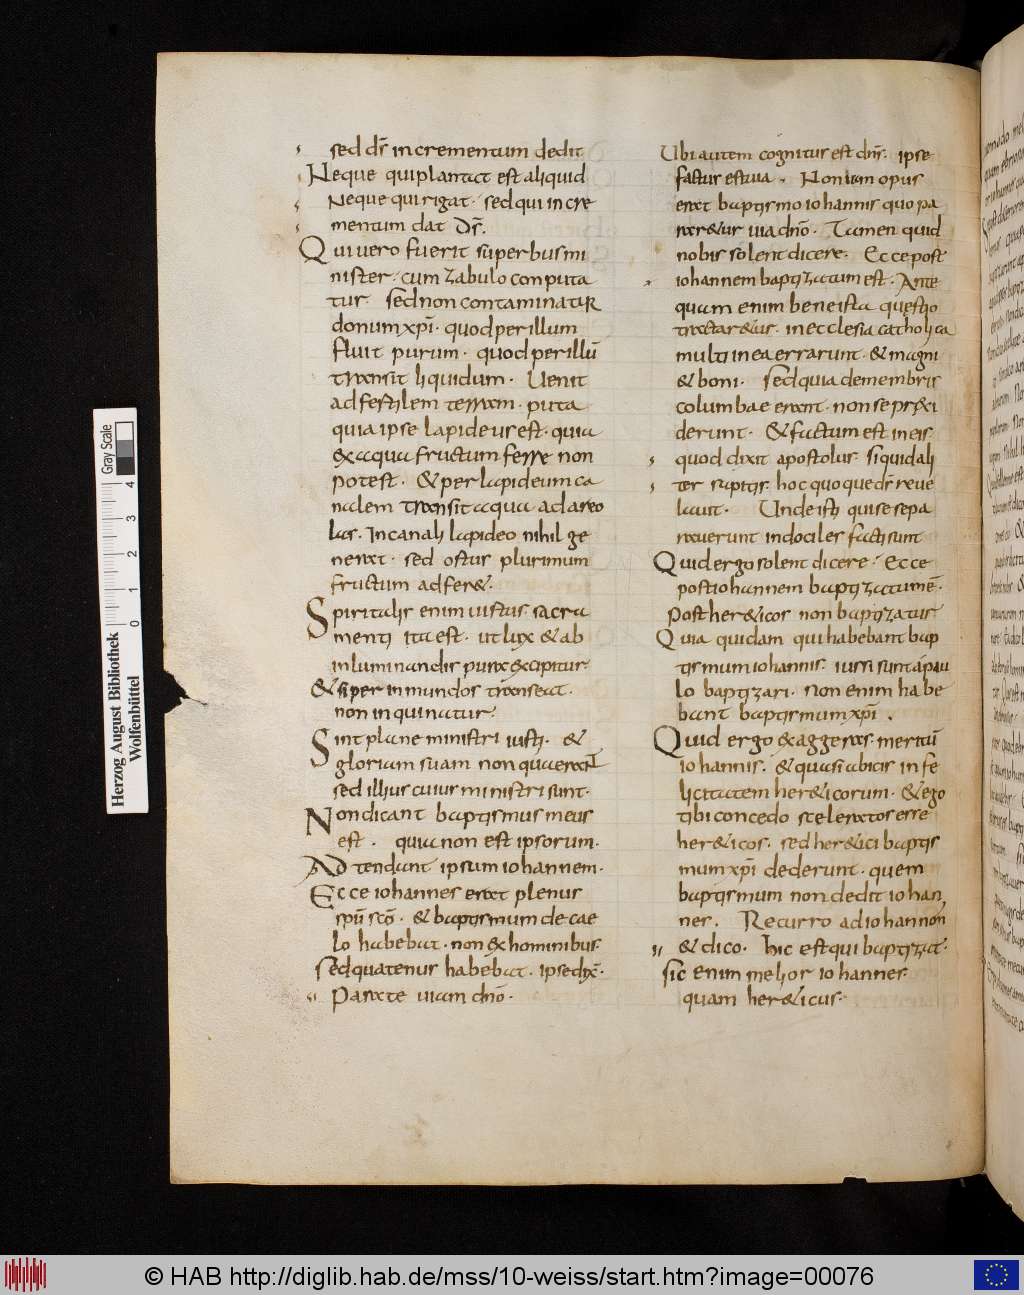 sed ds̄ incrementum dedit
Neque qui plantat est aliquid
Neque qui rigat· sed qui incre
mentum dat Ds̄.
Qui vero fuerit superbus mi
nister· cum zabulo computa
tur· sed non contaminatur
donum xp̄i· quod per illum
fluit purum· quod per illū
transit liquidum· Uenit
ad fertilem terram· puta
quia ipse lapideus est· quia
ex aqua fructum ferre non
potest· & per lapideum ca
nalem transit aqua ad areo
las. In canali lapideo nihil ge
nerat· sed ortus plurimum
fructum adfer&·
Spiritalis enim uirtus sacra
menti ita est· ut lux & ab
inluminandis pura excipitur
& si per inmundos transeat·
non inquinatur·
Sint plane ministri iusti· &
gloriam suam non quaerant
sed illius cuius ministri sunt·
Non dicant baptismus meus
est· quia non est ipsorum·
Adtendant ipsum iohannem·
Ecce iohannes erat plenus
spū scō· & baptismum de cae
lo habebat· non ex hominibus·
Sed quatenus habebat· ipse dix̄·
Parate uiam dnō·
Ubi autem cognitus est dns̄· ipse
factus est uia· Non iam opus
erat baptismo iohannis quo pa
rar&ur uia dnō· Tamen quid
nobis solent dicere· Ecce post
iohannem baptizatum est· Ante
quam enim bene ista questio
tractar&ur· in ecclesia catholica
multi in ea errarunt· & magni
& boni· sed quia de membris
columbae erant· non se prҽci
derunt· & factum est in eis·
quod dixit apostolus· si quid ali
ter sapitis· hoc quoque ds̄ reue
lauit· Unde isti qui se sepa
rauerunt indociles facti sunt
Quid ergo solent dicere· Ecce
post iohannem baptizatum ē·
Post her&icos non baptizatur
Quia quidam qui habebant bap
tismum iohannis· iussi sunt a pau
lo baptizari· Non enim habe
bant baptismum xp̄i·
Quid ergo exaggeras· meritū
iohannis· & quasi abicis infe
licitatem her&icorum· & ego
tibi concedo sceleratos esse
her&icos· sed her&ici baptis
mum xp̄i dederunt· quem
baptismum non dedit iohan
nes. Recurro ad iohannem
& dico· hic est qui baptizat·
sic enim melior iohannes
quam her&icus·
Gray Scale
0 1 2 3 4
Herzog August Bibliothek
Wolfenbüttel
© HAB http://diglib.hab.de/mss/10-weiss/start.htm?image=00076